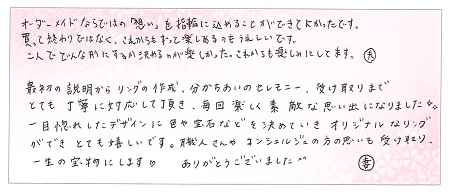 オーダーメイドならではの「想い」を指輪に込めることができてよかったです。
買って終わりではなく、これからもずっと楽しめるのもうれしいです。
二人でどんな形にするか決めるのが楽しかった。これからも楽しみにしてます。 夫
最初の説明からリングの作成、分かちあいのセレモニー、受け取りまで
とても丁寧に対応して頂き、毎回楽しく素敵な思い出になりました
一目惚れしたデザインに色や宝石などを決めていきオリジナルなリング
ができとても嬉しいです。職人さんやコンシェルジュの方の思いも受け取り、
一生の宝物にします♡ ありがとうございました^^ 妻